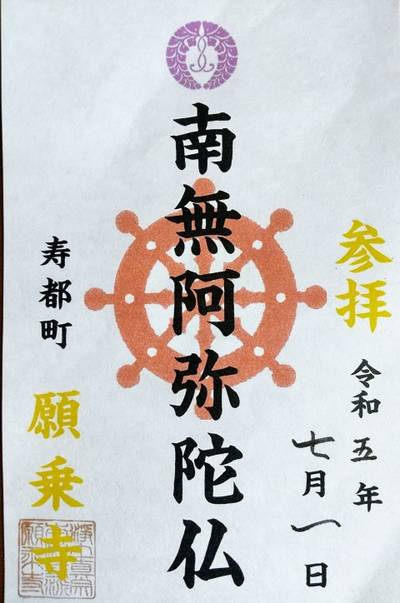 参拝
令和五年
七月一日
南無阿弥陀仏
寿都町
願乗寺